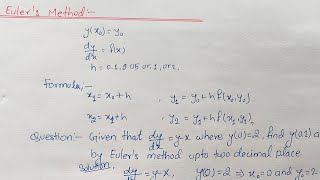 Euler's Method:-
y(x₀) = y₀
dy/dx = f(x)
h = 0.1, 0.05 or, 1, or 2.
Formula:-
x₁ = x₀ + h , y₁ = y₀ + h f(x₀, y₀)
x₂ = x₁ + h , y₂ = y₁ + h f(x₁, y₁)
Question:- Given that dy/dx = y-x where y(0)=2, Find y(0.2) a
by Euler's method upto two decimal place
Solution, dy/dx = y-x, y(0)=2 ⇒ x₀=0 and y₀=2